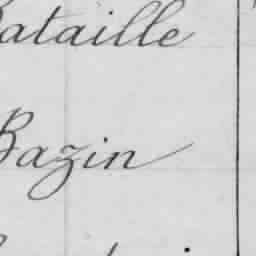 Bataille
Bazin